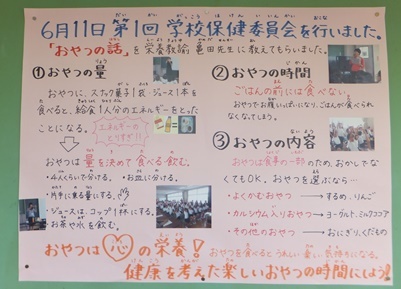 6月11日 第1回 学校保健委員会を行いました。
「おやつの話」を 栄養教諭 亀田先生に教えてもらいました。
①おやつの量
おやつに、スナック菓子1袋・ジュース1本を
食べると、給食1人分のエネルギーをとった
ことになる。
エネルギーの
とりすぎ!!
おやつは 量を決めて 食べる・飲む。
・4人くらいで分ける。・お皿に分ける。
・片手に乗る量にする。
・ジュースは、コップ1杯にする。
・お茶や水を飲む。
②おやつの時間
ごはんの前には 食べない。
おやつでお腹いっぱいになり、ごはんが食べられ
なくなってしまう。
③おやつの内容
おやつは食事の一部のため、おかしでな
くてもOK。おやつを選ぶなら…
・よくかむおやつ → するめ、りんご
・カルシウム入りおやつ→ヨーグルト、ミルクココア
・その他のおやつ → おにぎり、くだもの
おやつは 心 の 栄養!
おやつを食べると うれしい・楽しい気持ちになる。
健康を考えた楽しいおやつの時間にしよう!